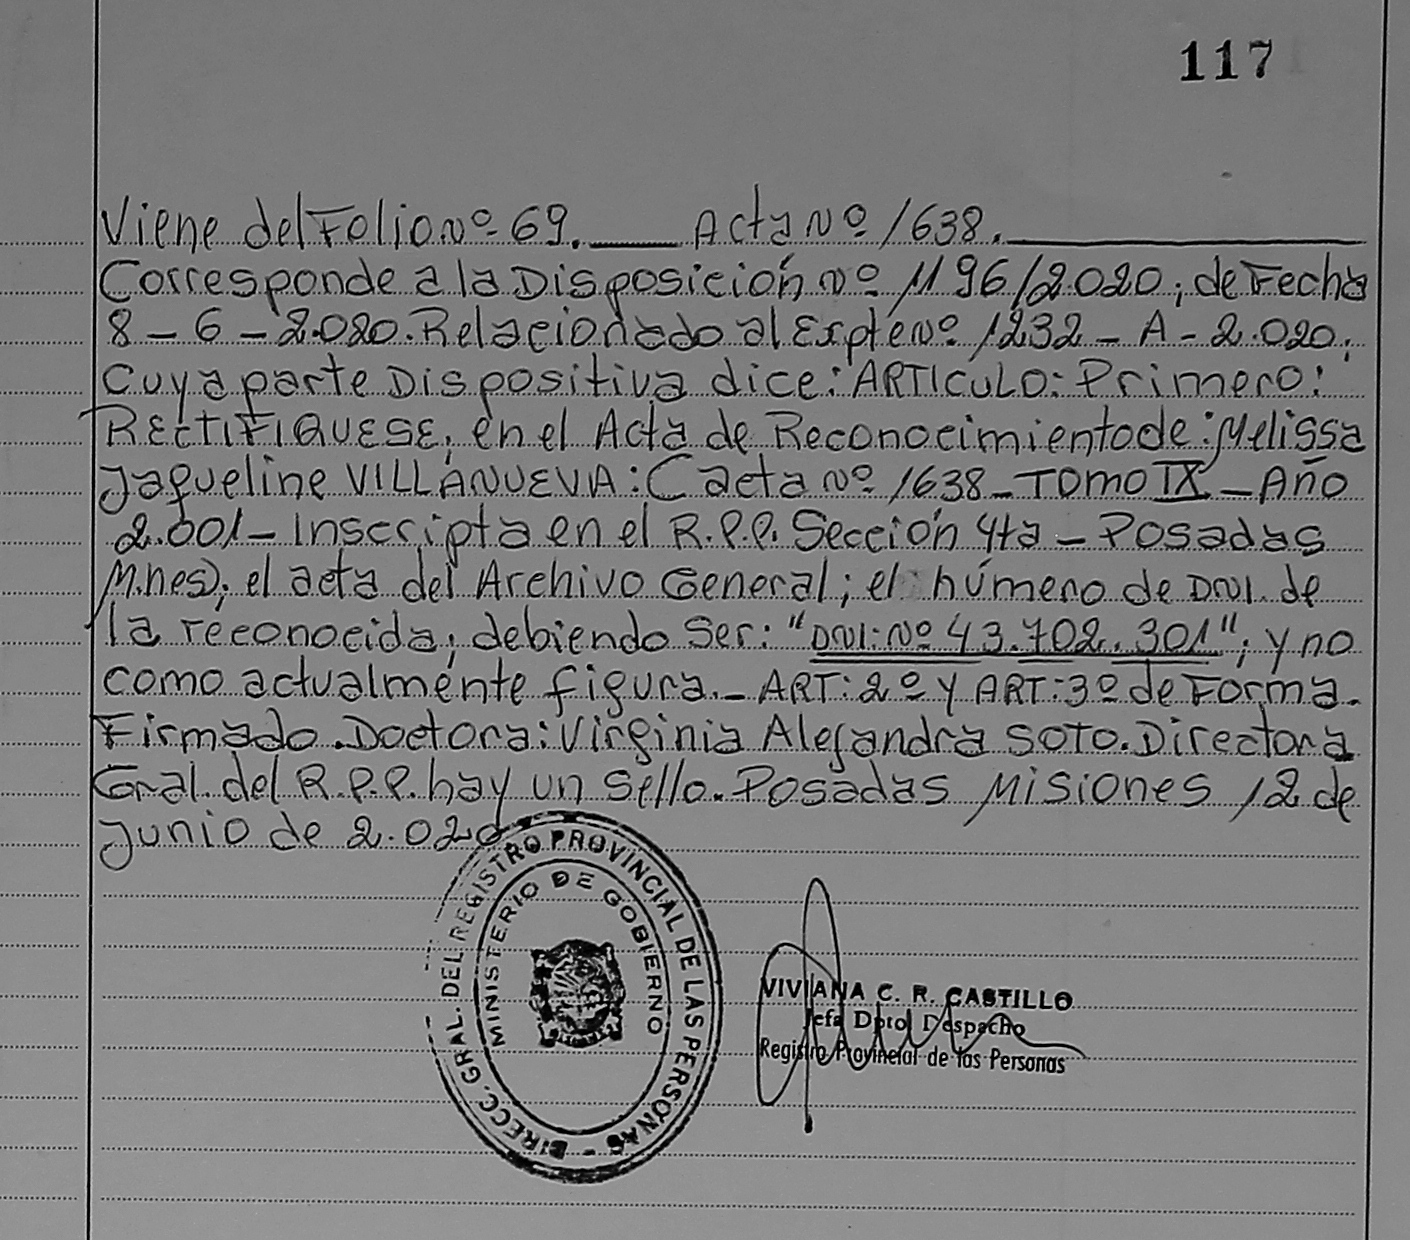 117
Viene del Folio nº 69. ____ Acta Nº 1638. ____
Corresponde a la Disposición Nº 1196/2020; de Fecha
8 - 6 - 2.020. Relacionado al Expte Nº 1232 - A - 2.020;
Cuya parte Dispositiva dice: ARTICULO: Primero:
RECTIFIQUESE, en el Acta de Reconocimiento de: Melissa
Jaqueline VILLANUEVA: (acta Nº 1638 - Tomo IX - Año
2.001 - Inscripta en el R.P.P. Sección 4ta - Posadas
M.nes); el acta del Archivo General; el número de DNI. de
la reconocida; debiendo Ser: "DNI: Nº 43.702.301"; y no
como actualmente figura. - ART: 2º y ART: 3º de Forma.
Firmado. Doctora: Virginia Alejandra SOTO. Directora
Gral. del R.P.P. hay un Sello. Posadas Misiones 12 de
Junio de 2.020
DIRECC. GRAL. DEL REGISTRO PROVINCIAL DE LAS PERSONAS -
MINISTERIO DE GOBIERNO
VIVIANA C. R. CASTILLO
Jefa Dpto Despacho
Registro Provincial de las Personas